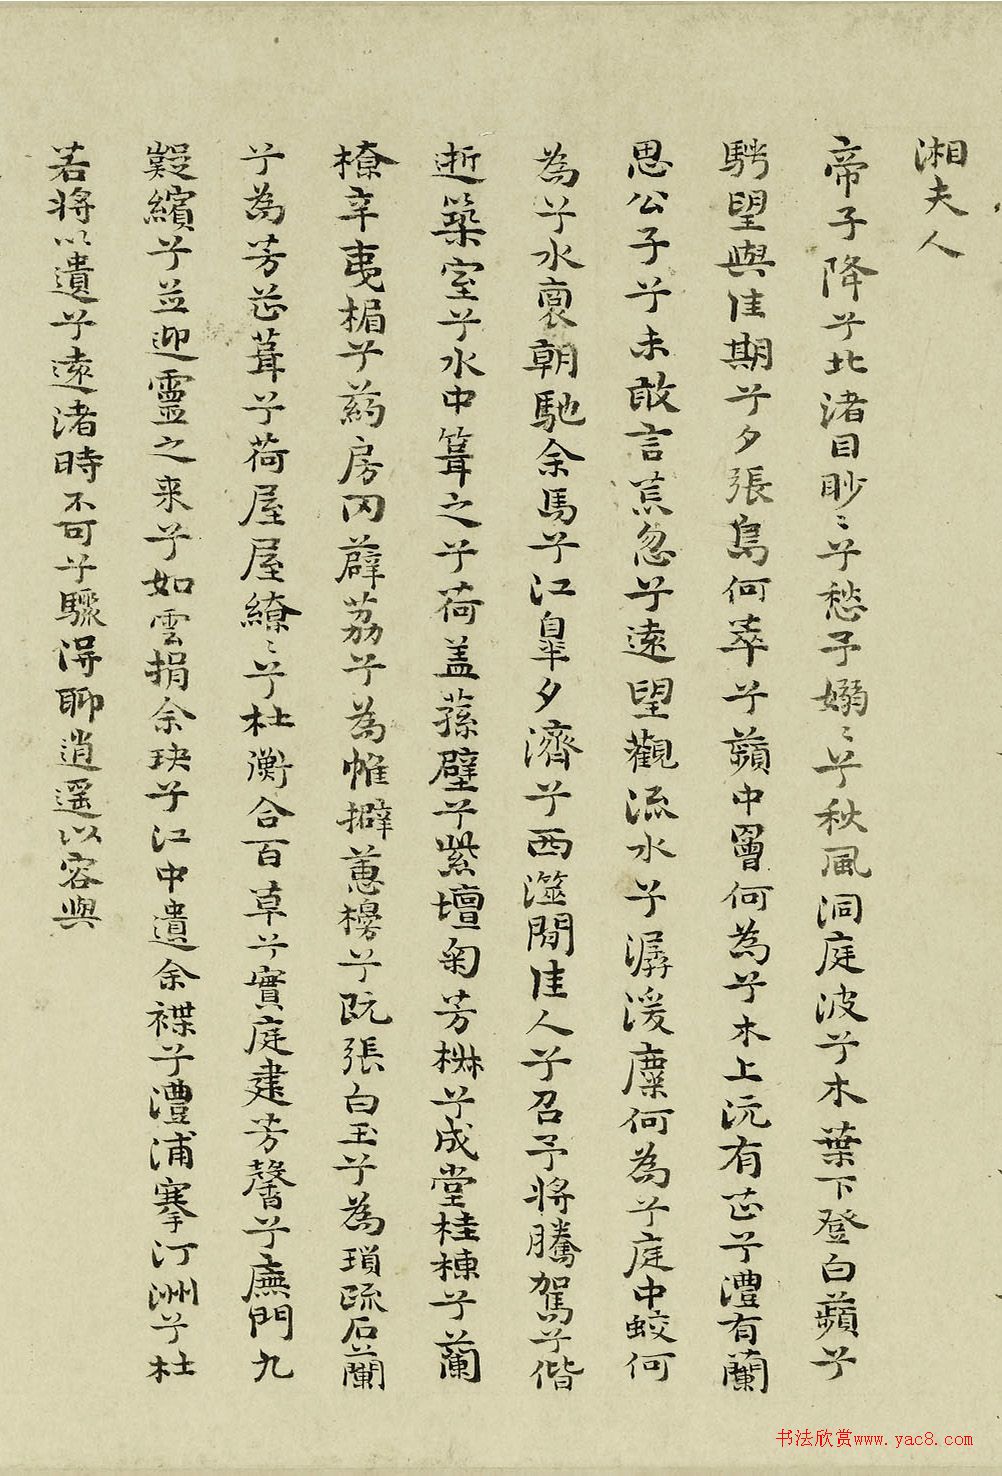 湘夫人
帝子降兮北渚目眇〻兮愁予嫋〻兮秋風洞庭波兮木葉下登白蘋兮
騁望與佳期兮夕張鳥何萃兮蘋中罾何為兮木上沅有芷兮澧有蘭
思公子兮未敢言荒忽兮遠望觀流水兮潺湲麋何為兮庭中蛟何
為兮水裔朝馳余馬兮江皋夕濟兮西澨聞佳人兮召予將騰駕兮偕
逝築室兮水中葺之兮荷盖蓀壁兮紫壇菊芳椒兮成堂桂棟兮蘭
橑辛夷楣兮葯房罔薜荔兮為帷擗蕙櫋兮既張白玉兮為瑱疏石蘭
兮為芳芷葺兮荷屋屋繚〻兮杜衡合百草兮實庭建芳馨兮廡門九
嶷繽兮並迎靈之来兮如雲捐余玦兮江中遺余褋兮澧浦搴汀洲兮杜
若將以遺兮遠渚時不可兮驟得聊逍遥以容與
书法欣赏www.yac8.com